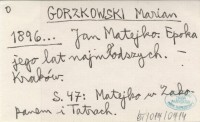 GORZKOWSKI Marian
1896... Jan Matejko. Epoka
jego lat najmłodszych. -
Kraków.
S. 47: Matejko w Zako-
panem i Tatrach.